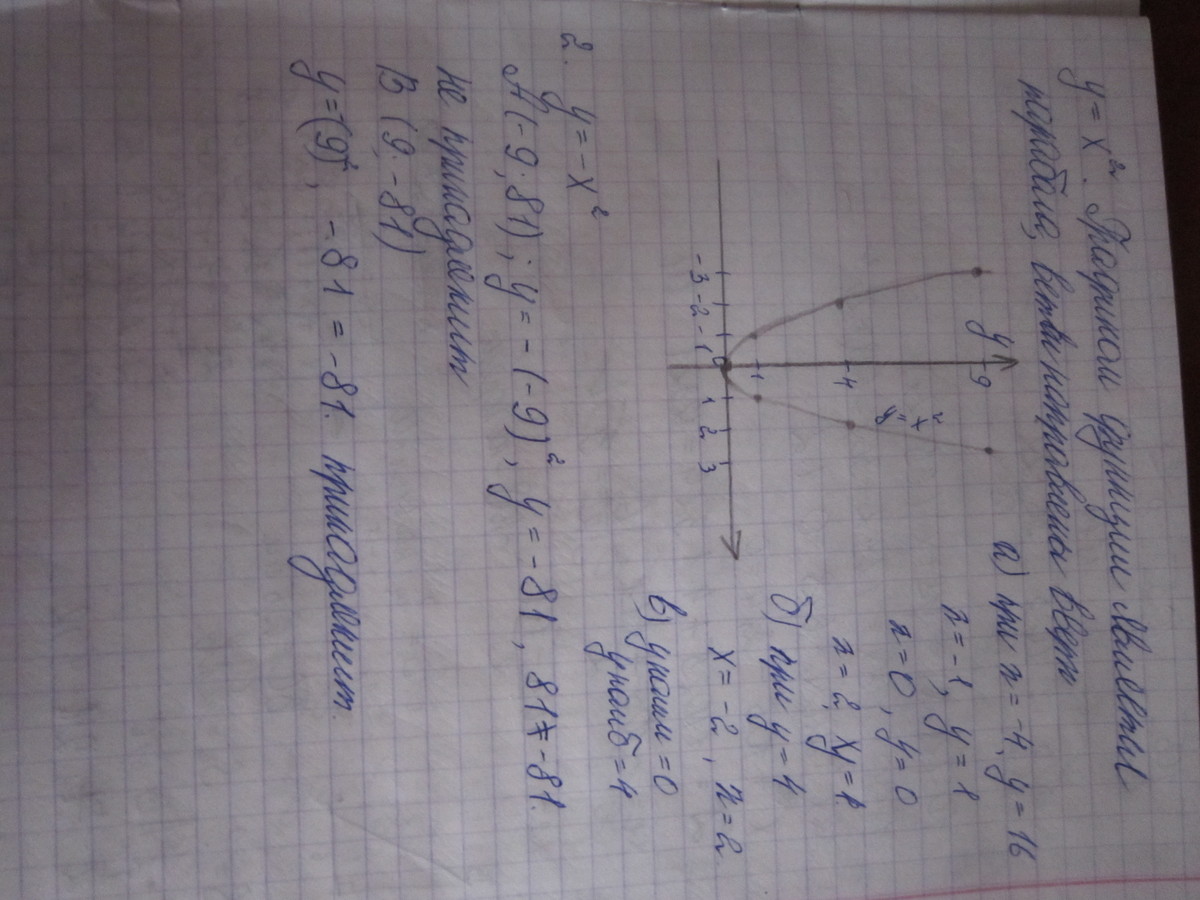 y = x². Графиком функции является
парабола, ветви направлены вверх
y
9
4
1
0
-3 -2 -1 1 2 3
y = x²
а) при x = -4, y = 16
x = -1, y = 1
x = 0, y = 0
x = 2,
б) при y = 4
x = -2, x = 2
в) y наим = 0
y наиб = 4
2. y = -x²
A (-9; 81); y = -(-9)², y = -81, 81 ≠ -81.
не принадлежит
B (9; -81)
y = (9)², -81 = -81. принадлежит.